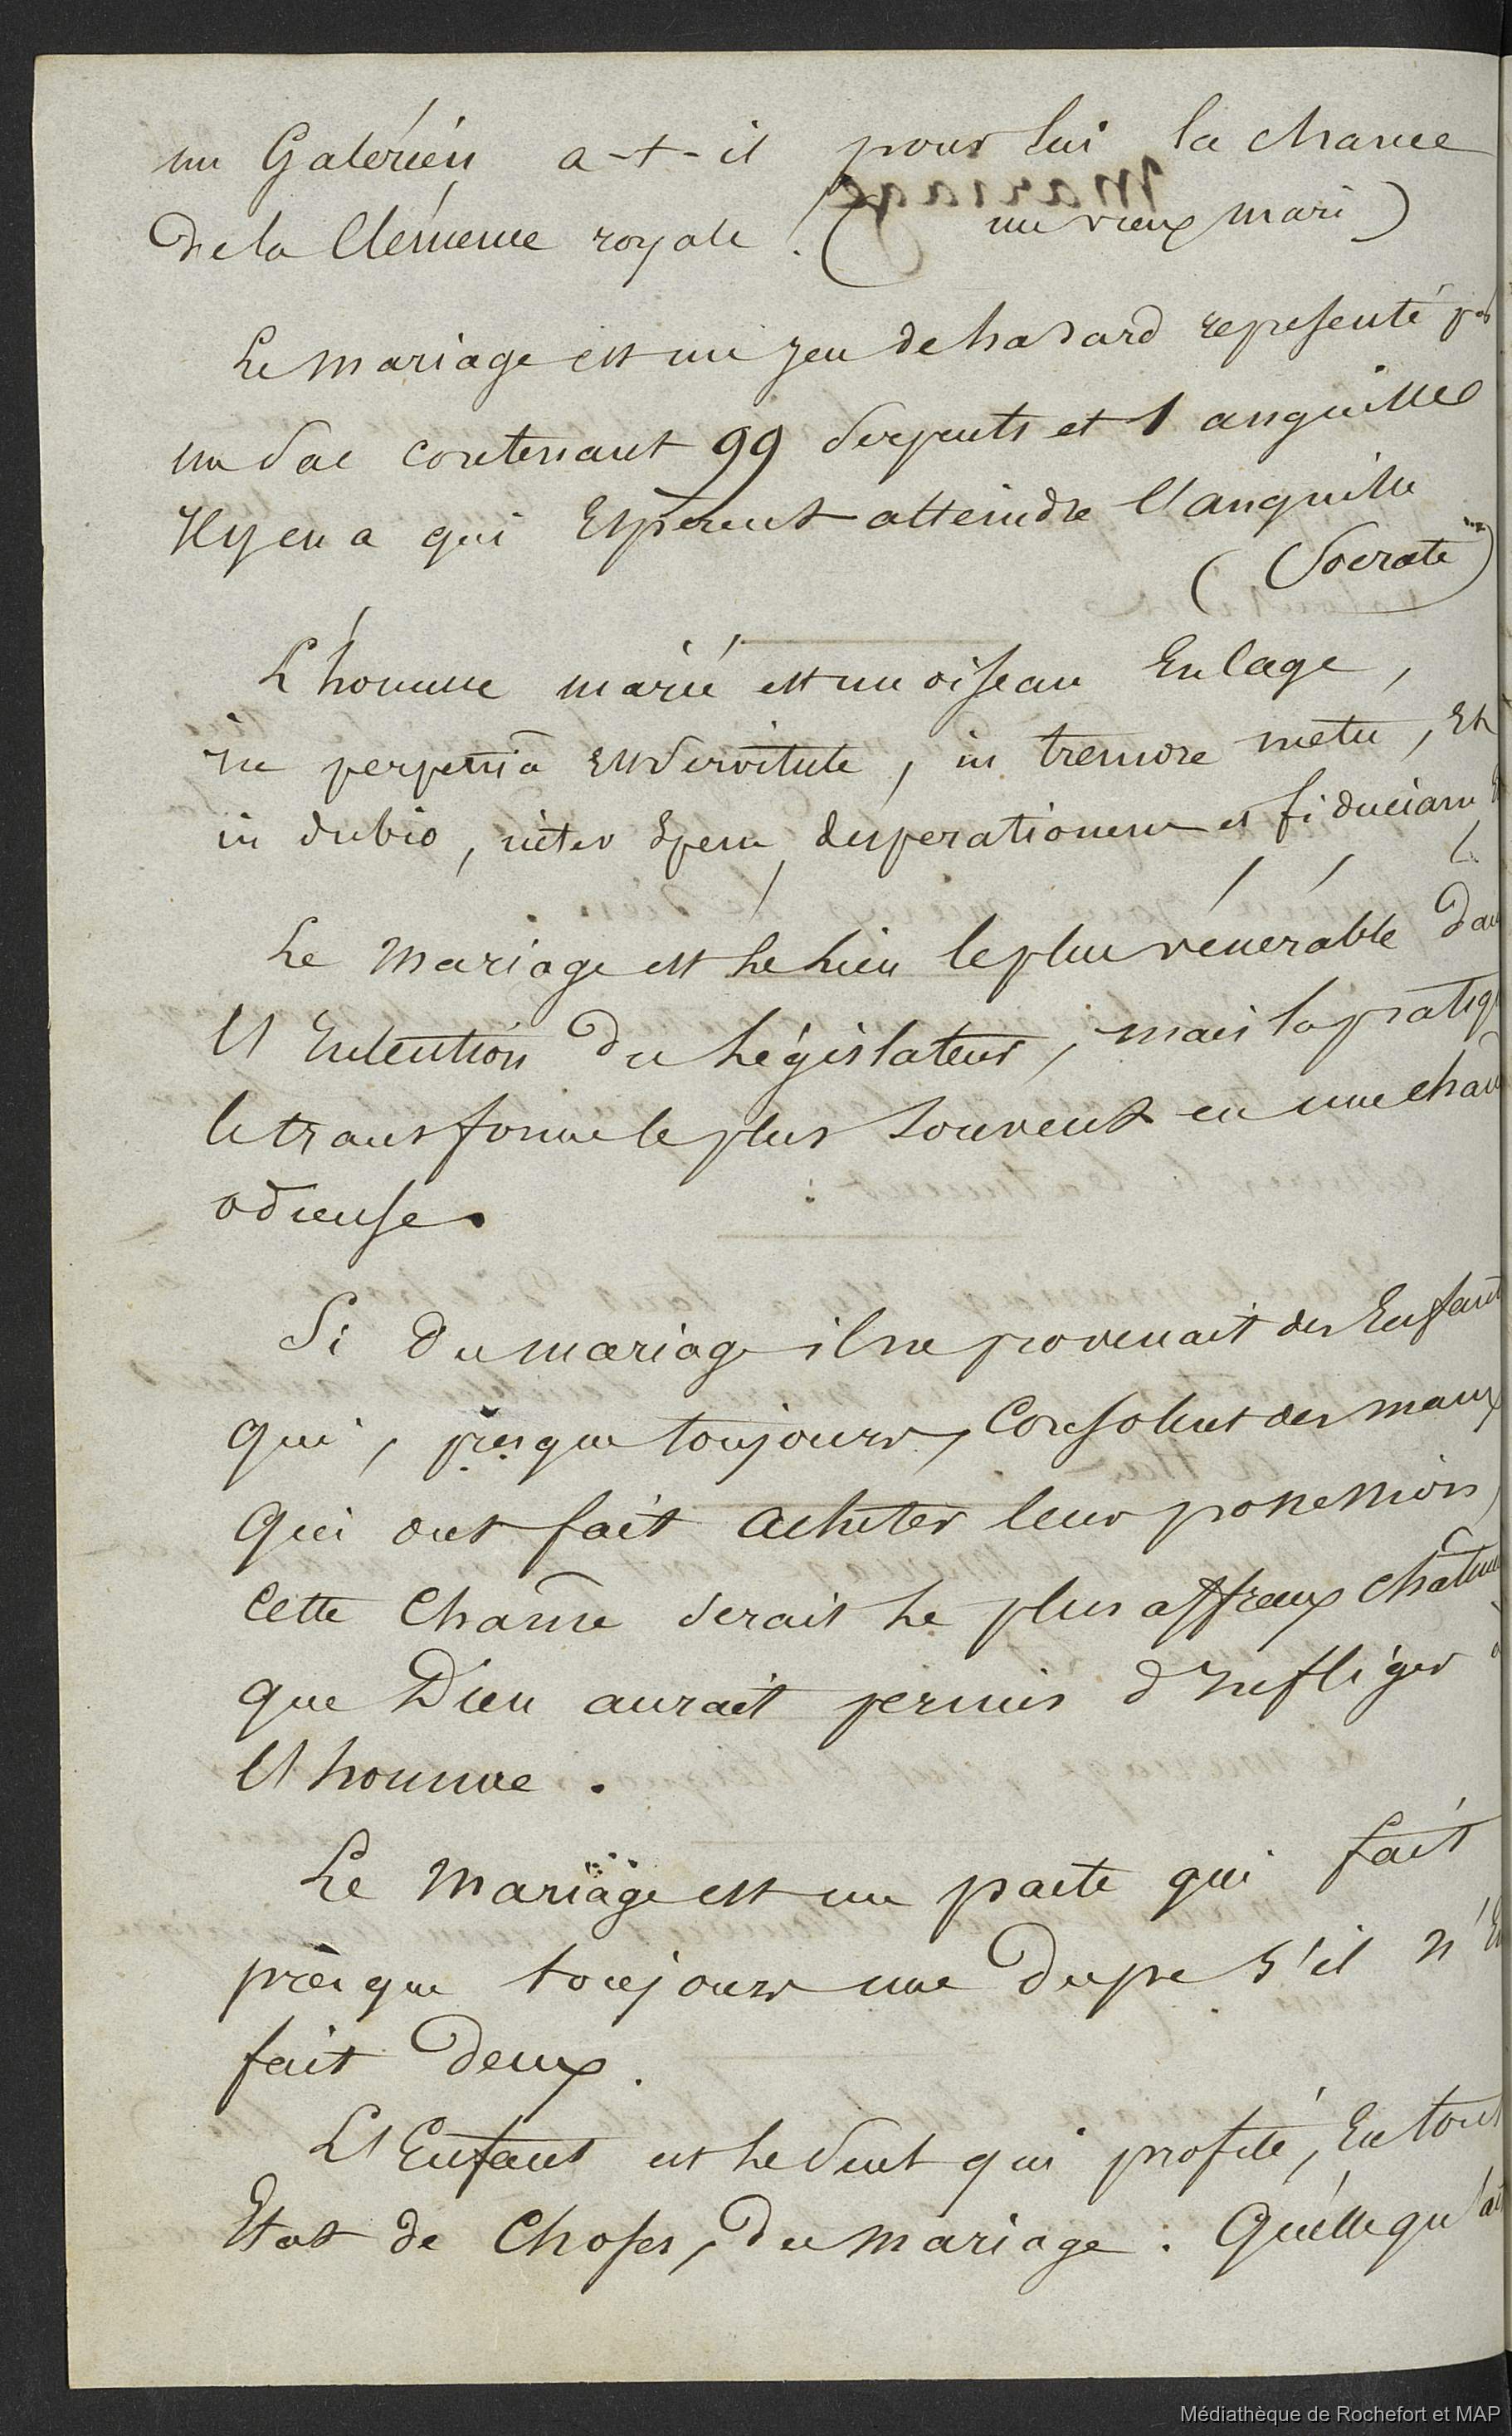 un Galérién a-t-il pour lui la chance
de la Clémence royale ! ( un vieux mari )
Le mariage est un jeu de hasard représenté par
un sac contenant 99 serpents et 1 anguille
Il y en a qui Espèrent atteindre l'anguille
( Socrate )
L'homme marié est un oiseau En cage,
in perpetuâ servitute, in tremore metu, Et
in dubio, inter Spem, desperationem et fiduciam
Le mariage est Le Lien le plus vénérable dans
l'Intention du Législateur, mais la pratiq
le transforme le plus souvent en une chaî
odieuse.
Si du mariage il ne provenait des Enfant
qui, prèsque toujours, Consolent des maux
qui ont fait acheter leur possession,
Cette Chaîne serait Le plus affreux châtim
que Dieu aurait permis d'Infliger à
l'homme.
Le mariage est un pacte qui fait
prèsque toujours une dupe s'il n'En
fait deux.
L'Enfant est Le seul qui profite, En tout
Etat de Choses, du mariage : Quelle qu'ait
Médiathèque de Rochefort et MAP